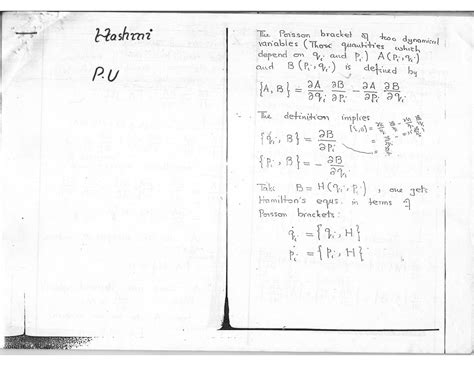 Hashmi
P.U
The Poisson bracket of two dynamical
variables (Those quantities which
depend on qᵢ and pᵢ) A(pᵢ,qᵢ)
and B(pᵢ,qᵢ) is defined by
{A, B} = ∂A/∂qᵢ ∂B/∂pᵢ - ∂A/∂pᵢ ∂B/∂qᵢ
The definition implies
{qᵢ, B} = ∂B/∂pᵢ
{pᵢ, B} = - ∂B/∂qᵢ
Take B = H(qᵢ,pᵢ), one gets
Hamilton's equs. in terms of
Poisson brackets:
q̇ᵢ = {qᵢ, H}
ṗᵢ = {pᵢ, H}